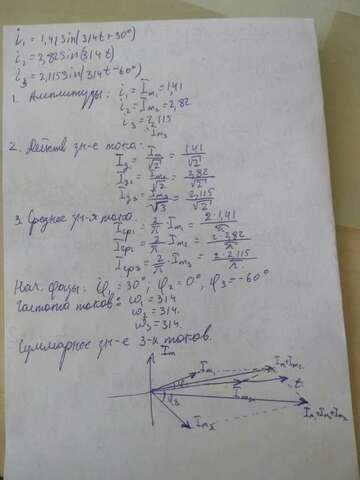 i₁ = 1,41 sin(314t+30°)
i₂ = 2,82 sin(314t)
i₃ = 2,115 sin(314t-60°)
1. Амплитуды: i₁ = Im₁ = 1,41
i₂ = Im₂ = 2,82
i₃ = 2,115
= Im₃
2. Действ зн-е тока:
Iд₁ = Im/√2 = 1,41/√2
Iд₂ = Im₂/√2 = 2,82/√2
Iд₃ = Im₃/√3 = 2,115/√2
3. Среднее зн-я тока.
Iср₁ = 2/π · Im₁ = 2·1,41/π
Iср₂ = 2/π · Im₂ = 2·2,82/π
Iср₃ = 2/π · Im₃ = 2·2,115/π
Нач. фазы: φ₁ = 30°; φ₂ = 0°; φ₃ = -60°
Частота токов: ω₁ = 314
ω₂ = 314.
ω₃ = 314.
Суммарное зн-е 3-х токов.
Im
Im₁
Im₁+Im₂
φ
φ₃
Im₂
t
Im₃
Im₁+Im₂+Im₃